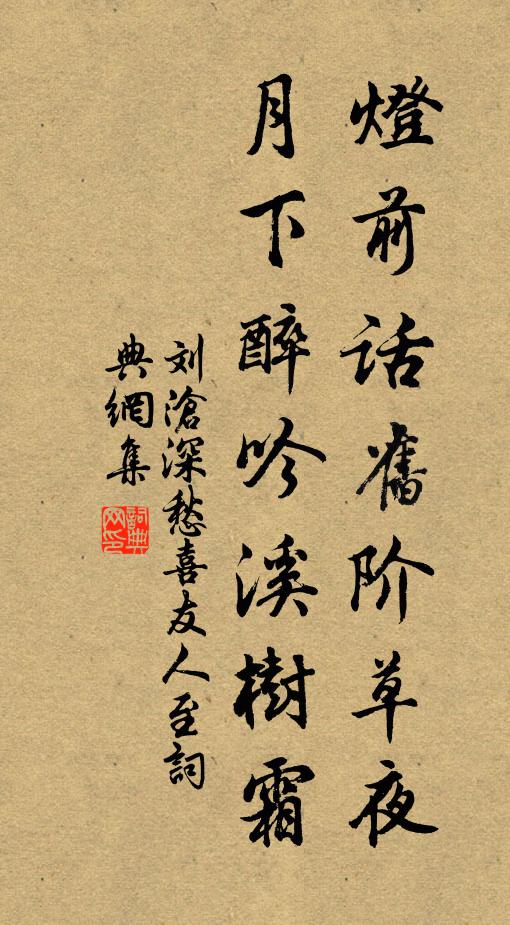 燈前话舊阶草夜
月下醉吟溪樹霜
刘滄深愁喜友人至詞
典網集
詞典网印